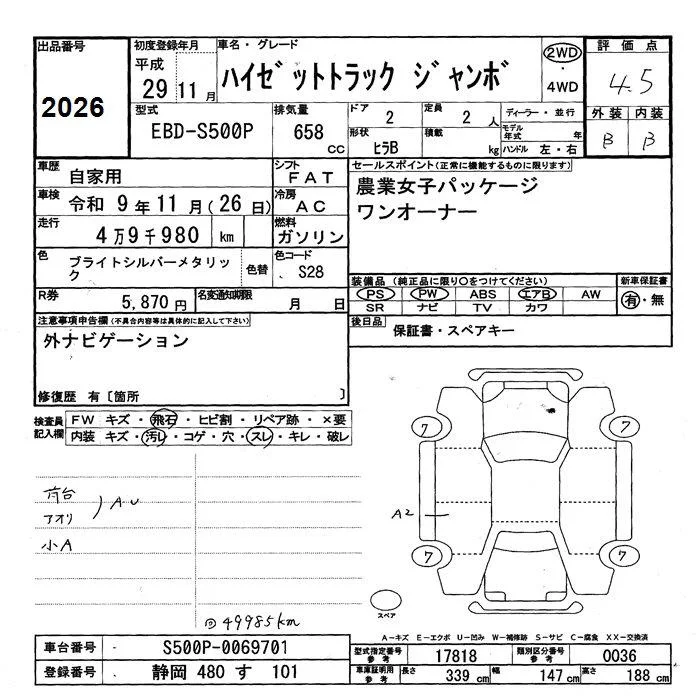 出品番号 2026
初度登録年月 平成 29 11 月
車名・グレード ハイゼットトラック ジャンボ
2WD ・ 4WD
評価点 4.5
外装 内装
B B
型式 EBD-S500P
排気量 658 cc
ドア 2
定員 2 人
ディーラー・並行
形状 ヒラB
積載 kg
モデル年式 年
ハンドル 左・右
車歴 自家用
シフト FAT
セールスポイント(正常に機能するものに限ります)
農業女子パッケージ
ワンオーナー
車検 令和 9 年 11 月 ( 26 日)
冷房 AC
走行 4 万 9 千 980 km
燃料 ガソリン
色 ブライトシルバーメタリック
色替
色コード S28
装備品 (純正品に限り○をつけてください)
新車保証書
PS PW ABS エアB AW
SR ナビ TV カワ
有・無
R券 5,870 円
名変通知期限 月 日
後日品 保証書・スペアキー
注意事項申告欄(不具合内容等は具体的に記入して下さい)
外ナビゲーション
修復歴 有〔箇所 〕
検査員記入欄
FW キズ・飛石・ヒビ割・リペア跡・×要
内装 キズ・汚レ・コゲ・穴・スレ・キレ・破レ
7 7
荷台
アオリ
) AU
A2
小A
7 7
スペア
@ 49985km
A−キズ E−エクボ U−凹み W−補修跡 S−サビ C−腐食 XX−交換済
車台番号 S500P-0069701
型式指定番号 参考 17818
類別区分番号 参考 0036
登録番号 静岡 480 す 101
車庫証明用 参考 長さ 339 cm 幅 147 cm 高さ 188 cm